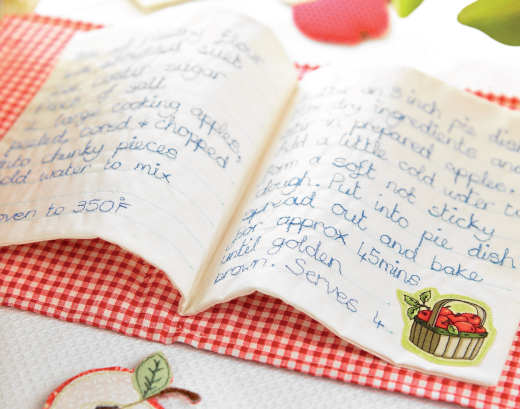 flour
suet
sugar
of salt
2 large cooking apples,
peeled, cored & chopped
into chunky pieces
cold water to mix
oven to 350°F
an 8 inch pie dish
dry ingredients and
in prepared apples.
Add a little cold water to
form a soft not sticky
dough. Put into pie dish
spread out and bake
for approx 45mins
until golden
brown. Serves 4.